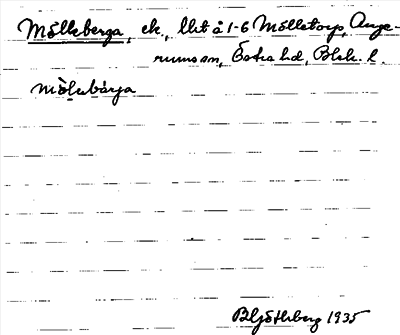 Mölleberga, ek., lht å 1-6 Möllstorp, Auge-
rums sn, Östra hd, Blek. l.
mölabárja
B Ljöthberg 1935